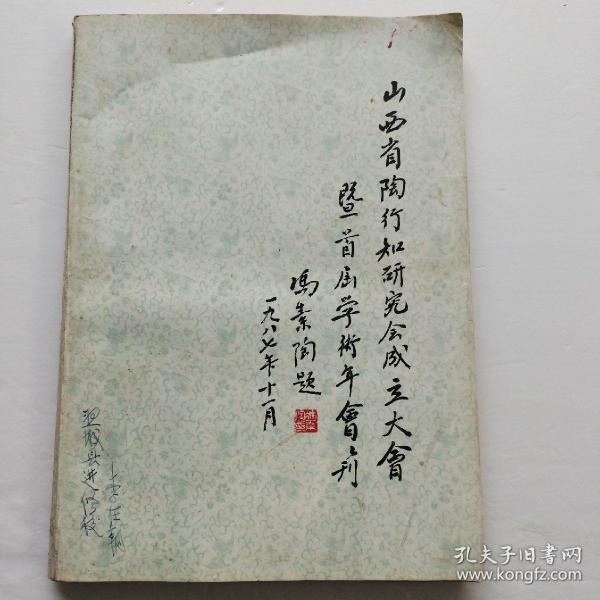 山西省陶行知研究会成立大會
暨首届学術年會會刊
馮素陶題
一九八七年十一月
县进修校
孔夫子旧书网
www.kongfz.com